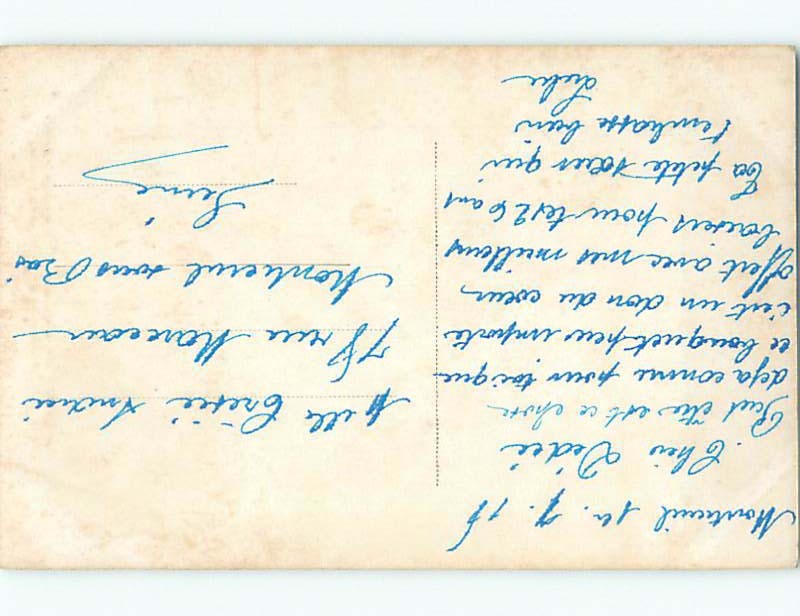 Montreuil
Cher Dédée
Peut être est ce chose
deja connue pour toi que
ce bouquet peu importe
c'est un don du coeur
offert avec mes meilleurs
baisers pour tes 26 ans
Ta petite soeur qui
t'embrasse bien
Melle Andrée
78 rue Marceau
Montreuil sous Bois
Seine